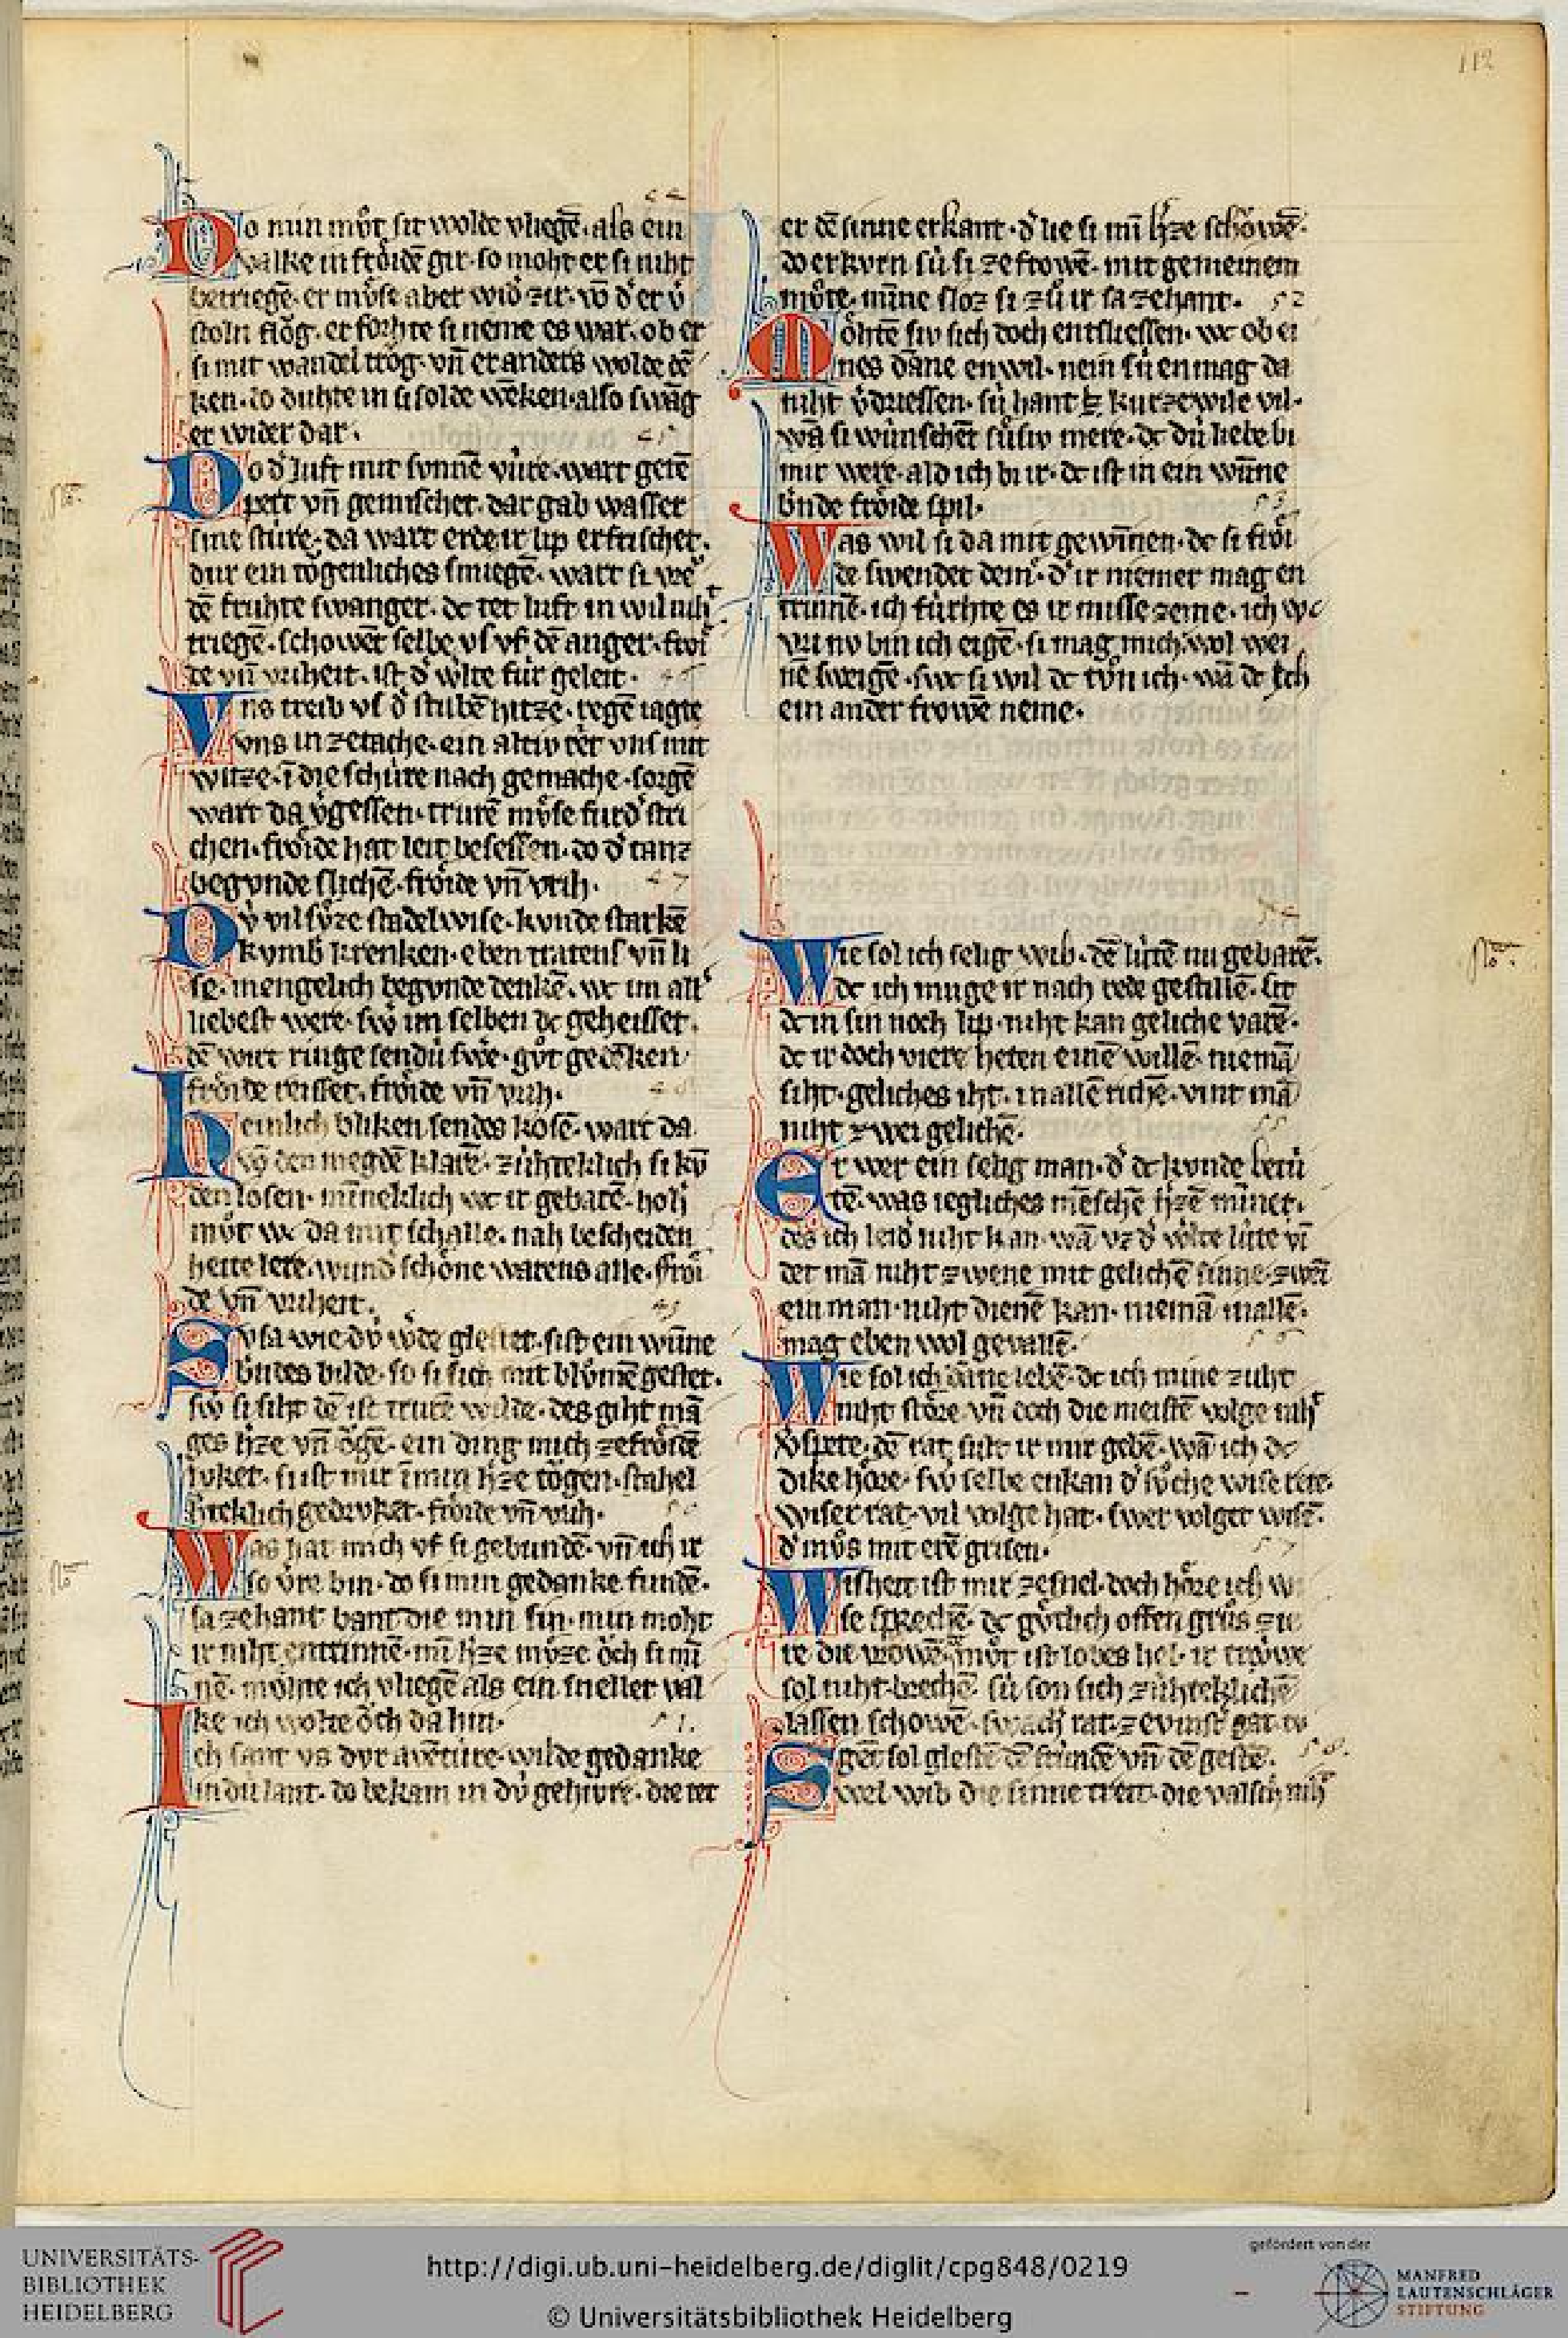 112
44
Do min mv̊t sit wolde vliegē. als ein
valke in frôidē gir. so moht er si niht
betriegē. er mv̊se aber wid᾽ zir. vō d᾽ er v᾽
stoln flôg. er forhte si neme es war. ob er
si mit wandel trôg. vn̄ er anders wolde dē
ken. do duhte in si solde wēken. also swāg
er wider dar.
45
Do d᾽ luft mit svnnē vúre. wart getē
pert vn̄ gemischet. dar gab wasser
sine stúre. da wart erde ir lip erfrischet.
dur ein tôgenliches smiegē. wart si vrē
dē fruhte swanger. dc tet luft in wil niht
triegē. schowēt selbe vs vf dē anger. frôi
de vn̄ vriheit. ist d᾽ w᾽lte fúr geleit.
46
Vns treib vs d᾽ stubē hitze. regē iagte
vns in zetache. ein altiv riet vns mit
witze. ī die schúre nach gemache. sorgē
wart da v᾽gessen. trurē mv̊se fúrd᾽ stri
chen. frôide hat leit besessen. do d᾽ tanz
begvnde slichē. frôide vn̄ vrih.
47
Dv́ vil sv̊ze stadelwise. kvnde starkē
kvmb᾽ krenken. eben tratens vn̄ li
se. mengelich begvnde denkē. wc im all᾽
liebest were. sw᾽ im selben dc geheisset.
dē wirt ringe sendú sw᾽e. gv̊t gedēken
frôide reisset. frôide vn̄ vrih.
48
Heinlich bliken sendes kosē. wart da
vō den megdē klarē. zúhteklich si kv̄
den losen. mīneklich wc ir gebarē. hoh᾽
mv̊t wc da mit schalle. nah bescheiden
heite lere. wund᾽ schône warens alle. frôi
de vn̄ vriheit.
49
Svsa wie dv́ w᾽de glestet. sist ein wūne
b᾽ndes bilde. so si sich mit blv̊mē gestet.
sw᾽ si siht dē ist trurē wilde. des giht mā
ges h᾽ze vn̄ ôgē. ein ding mich zefrôidē
lvket. sust mir ī min h᾽ze tôgen. stahel
h᾽teklich gedrvket. frôide vn̄ vrih.
50
Was hat mich vf si gebundē. vn̄ ich ir
so v᾽re bin. do si min gedanke fundē.
sa zehant bant die min sin. min moht
ir niht entrinnē. mī h᾽ze mv̊ze ôch si mī
nē. môhte ich vliegē als ein sneller val
ke ich wolte ôch da hin.
51.
Ich sant vs dvr avētúre. wilde gedanke
in dú lant. do bekam in dv́ gehúre. die ter
er dē sinne erkant. d᾽ lie si mī h᾽ze schôwē.
do erkvrn sú si ze frowē. mit gemeinem
mv̊te. mīne sloz si zů ir sa zehant.
52
Môhtē siv sich doch entsliessen. wc ob ei
nes dāne enwil. nein sú en mag da
niht v᾽driessen. sú hant h᾽z kurzewile vil.
wā si wúnschēt súsiv mere. dc dú liebe bi
mir were. ald ich bi ir. dc ist in ein wūne
b᾽nde frôide spil.
53
Was wil si da mit gewīnen. dc si frôi
de swendet dem᾽. d᾽ ir niemer mag en
trinnē. ich fúrhte es ir missezeme. ich wc
vri nv bin ich eigē. si mag mich wol wei
nē sweigē. swc si wil dc tůn ich. wā dc ich
ein ander frowē neme.
54
Wie sol ich selig wib. dē lútē nu gebarē.
dc ich muge ir nach rede gestillē. sit
dc in sin noch lip. niht kan geliche varē.
dc ir doch viere heten einē willē. niemā
siht. geliches iht. in allē richē. vint mā
niht zwei gelichē.
55
Er wer ein selig man. d᾽ dc kvnde betú
tē. was iegliches mēschē h᾽zē mīnet.
des ich leid᾽ niht kan. wā vz d᾽ w᾽lte lúte vī
det mā niht zwene mit gelichē sinne. zwēī
ein man. niht dienē kan. niemā ī allē.
mag eben wol gevallē.
56
Wie sol ich dāne lebē. dc ich mine zuht
niht stôre. vn̄ doch die meistē volge niht
v᾽spete. dē rat sult ir mir gebē. wā ich dc
dike hôre. sw᾽ selbe enkan d᾽ sůche wise rete.
wiser rat. vil volge hat. swer volget wisē.
d᾽ můs mit erē grisen.
57
Wisheit ist mir zesnel. doch hôre ich wi
se sprechē. dc gv̊tlich offen grůs zie
re die vrowē. mv̊t ist lobes hel. ir trúwe
sol niht brechē. sú son sich zúhteklichē
lassen schowē. swach᾽ rat. ze vinst᾽ gat. tv
gēt sol glestē dē frúndē vn̄ dē gestē.
58.
Swel wib die sinne treit. die valsch niht
UNIVERSITÄTS-
BIBLIOTHEK
HEIDELBERG
http://digi.ub.uni-heidelberg.de/diglit/cpg848/0219
© Universitätsbibliothek Heidelberg
gefördert von der
MANFRED
LAUTENSCHLÄGER
STIFTUNG